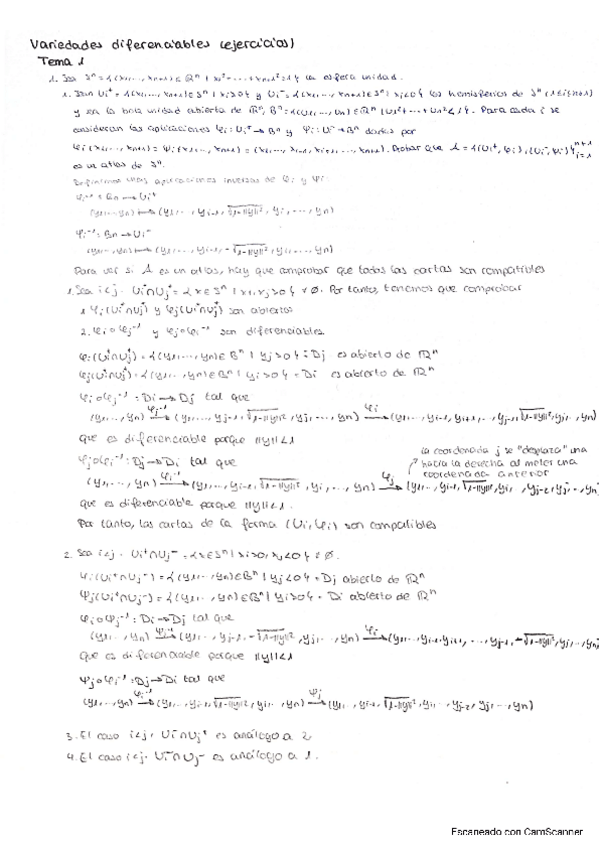 Variedades diferenciables (ejercicios)
Tema 1
1. Sea Sⁿ = {(x₁,..., xₙ₊₁) ∈ ℝⁿ⁺¹ | x₁² + ··· + xₙ₊₁² = 1} la esfera unidad.
1. Sean Uᵢ⁺ = {(x₁,..., xₙ₊₁) ∈ Sⁿ | xᵢ > 0} y Uᵢ⁻ = {(x₁,..., xₙ₊₁) ∈ Sⁿ | xᵢ < 0} los hemisferios de Sⁿ (1 ≤ i ≤ n+1)
y en la bola unidad abierta de ℝⁿ, Bⁿ = {(u₁,..., uₙ) ∈ ℝⁿ | u₁² + ··· + uₙ² < 1}. Para cada i se
consideran las aplicaciones φᵢ: Uᵢ⁺ → Bⁿ y ψᵢ: Uᵢ⁻ → Bⁿ dadas por
φᵢ(x₁,..., xₙ₊₁) = ψᵢ(x₁,..., xₙ₊₁) = (x₁,..., xᵢ₋₁, xᵢ₊₁,..., xₙ₊₁). Probar que A = {(Uᵢ⁺, φᵢ), (Uᵢ⁻, ψᵢ)}ᵢ₌₁ⁿ⁺¹
es un atlas de Sⁿ.
Definimos las aplicaciones inversas de φᵢ y ψᵢ
φᵢ⁻¹: Bn → Uᵢ⁺
(y₁,...,yn) ↦ (y₁,..., yᵢ₋₁, √1-||y||², yᵢ,..., yn)
ψᵢ⁻¹: Bn → Uᵢ⁻
(y₁,...,yn) ↦ (y₁,..., yᵢ₋₁, -√1-||y||², yᵢ,..., yn)
Para ver si A es un atlas, hay que comprobar que todas las cartas son compatibles
1. Sea i<j. Uᵢ⁺∩Uⱼ⁺ = {x ∈ Sⁿ | xᵢ, xⱼ > 0} ≠ ∅. Por tanto, tenemos que comprobar
1. φᵢ(Uᵢ⁺∩Uⱼ⁺) y φⱼ(Uᵢ⁺∩Uⱼ⁺) son abiertos
2. φᵢ∘φⱼ⁻¹ y φⱼ∘φᵢ⁻¹ son diferenciables.
φᵢ(Uᵢ⁺∩Uⱼ⁺) = {(y₁,..., yn) ∈ Bⁿ | yⱼ > 0} = Dj es abierto de ℝⁿ
φⱼ(Uᵢ⁺∩Uⱼ⁺) = {(y₁,..., yn) ∈ Bⁿ | yᵢ > 0} = Di es abierto de ℝⁿ
φᵢ∘φⱼ⁻¹: Di → Dj tal que
(y₁,..., yn) →φⱼ⁻¹ (y₁,..., yⱼ₋₁, √1-||y||², yⱼ,..., yn) →φᵢ (y₁,..., yᵢ₋₁, yᵢ₊₁,..., yⱼ₋₁, √1-||y||², yⱼ,..., yn)
que es diferenciable porque ||y||<1
la coordenada j se "desplaza" una
hacia la derecha al meter una
coordenada anterior
φⱼ∘φᵢ⁻¹: Dj → Di tal que
(y₁,..., yn) →φᵢ⁻¹ (y₁,..., yᵢ₋₁, √1-||y||², yᵢ,..., yn) →φⱼ (y₁,..., yᵢ₋₁, √1-||y||², yᵢ,..., yⱼ₋₂, yⱼ,..., yn)
que es diferenciable porque ||y||<1.
Por tanto, las cartas de la forma (Ui, φi) son compatibles
2. Sea i<j. Uᵢ⁺∩Uⱼ⁻ = {x ∈ Sⁿ | xᵢ>0, xⱼ<0} ≠ ∅.
φᵢ(Uᵢ⁺∩Uⱼ⁻) = {(y₁,..., yn) ∈ Bⁿ | yⱼ < 0} = Dj abierto de ℝⁿ
ψⱼ(Uᵢ⁺∩Uⱼ⁻) = {(y₁,..., yn) ∈ Bⁿ | yᵢ > 0} = Di abierto de ℝⁿ
φᵢ∘ψⱼ⁻¹: Di → Dj tal que
(y₁,..., yn) →ψⱼ⁻¹ (y₁,..., yⱼ₋₁, -√1-||y||², yⱼ,..., yn) →φᵢ (y₁,..., yᵢ₋₁, yᵢ₊₁, ..., yⱼ₋₁, -√1-||y||², yⱼ,..., yn)
que es diferenciable porque ||y||<1
ψⱼ∘φᵢ⁻¹: Dj → Di tal que
(y₁,..., yn) →φᵢ⁻¹ (y₁,..., yᵢ₋₁, √1-||y||², yᵢ,..., yn) →ψⱼ (y₁,..., yᵢ₋₁, √1-||y||², yᵢ,..., yⱼ₋₂, yⱼ,..., yn)
3. El caso i<j. Uᵢ⁻∩Uⱼ⁺ es análogo a 2
4. El caso i<j. Uᵢ⁻∩Uⱼ⁻ es análogo a 1.
Escaneado con CamScanner